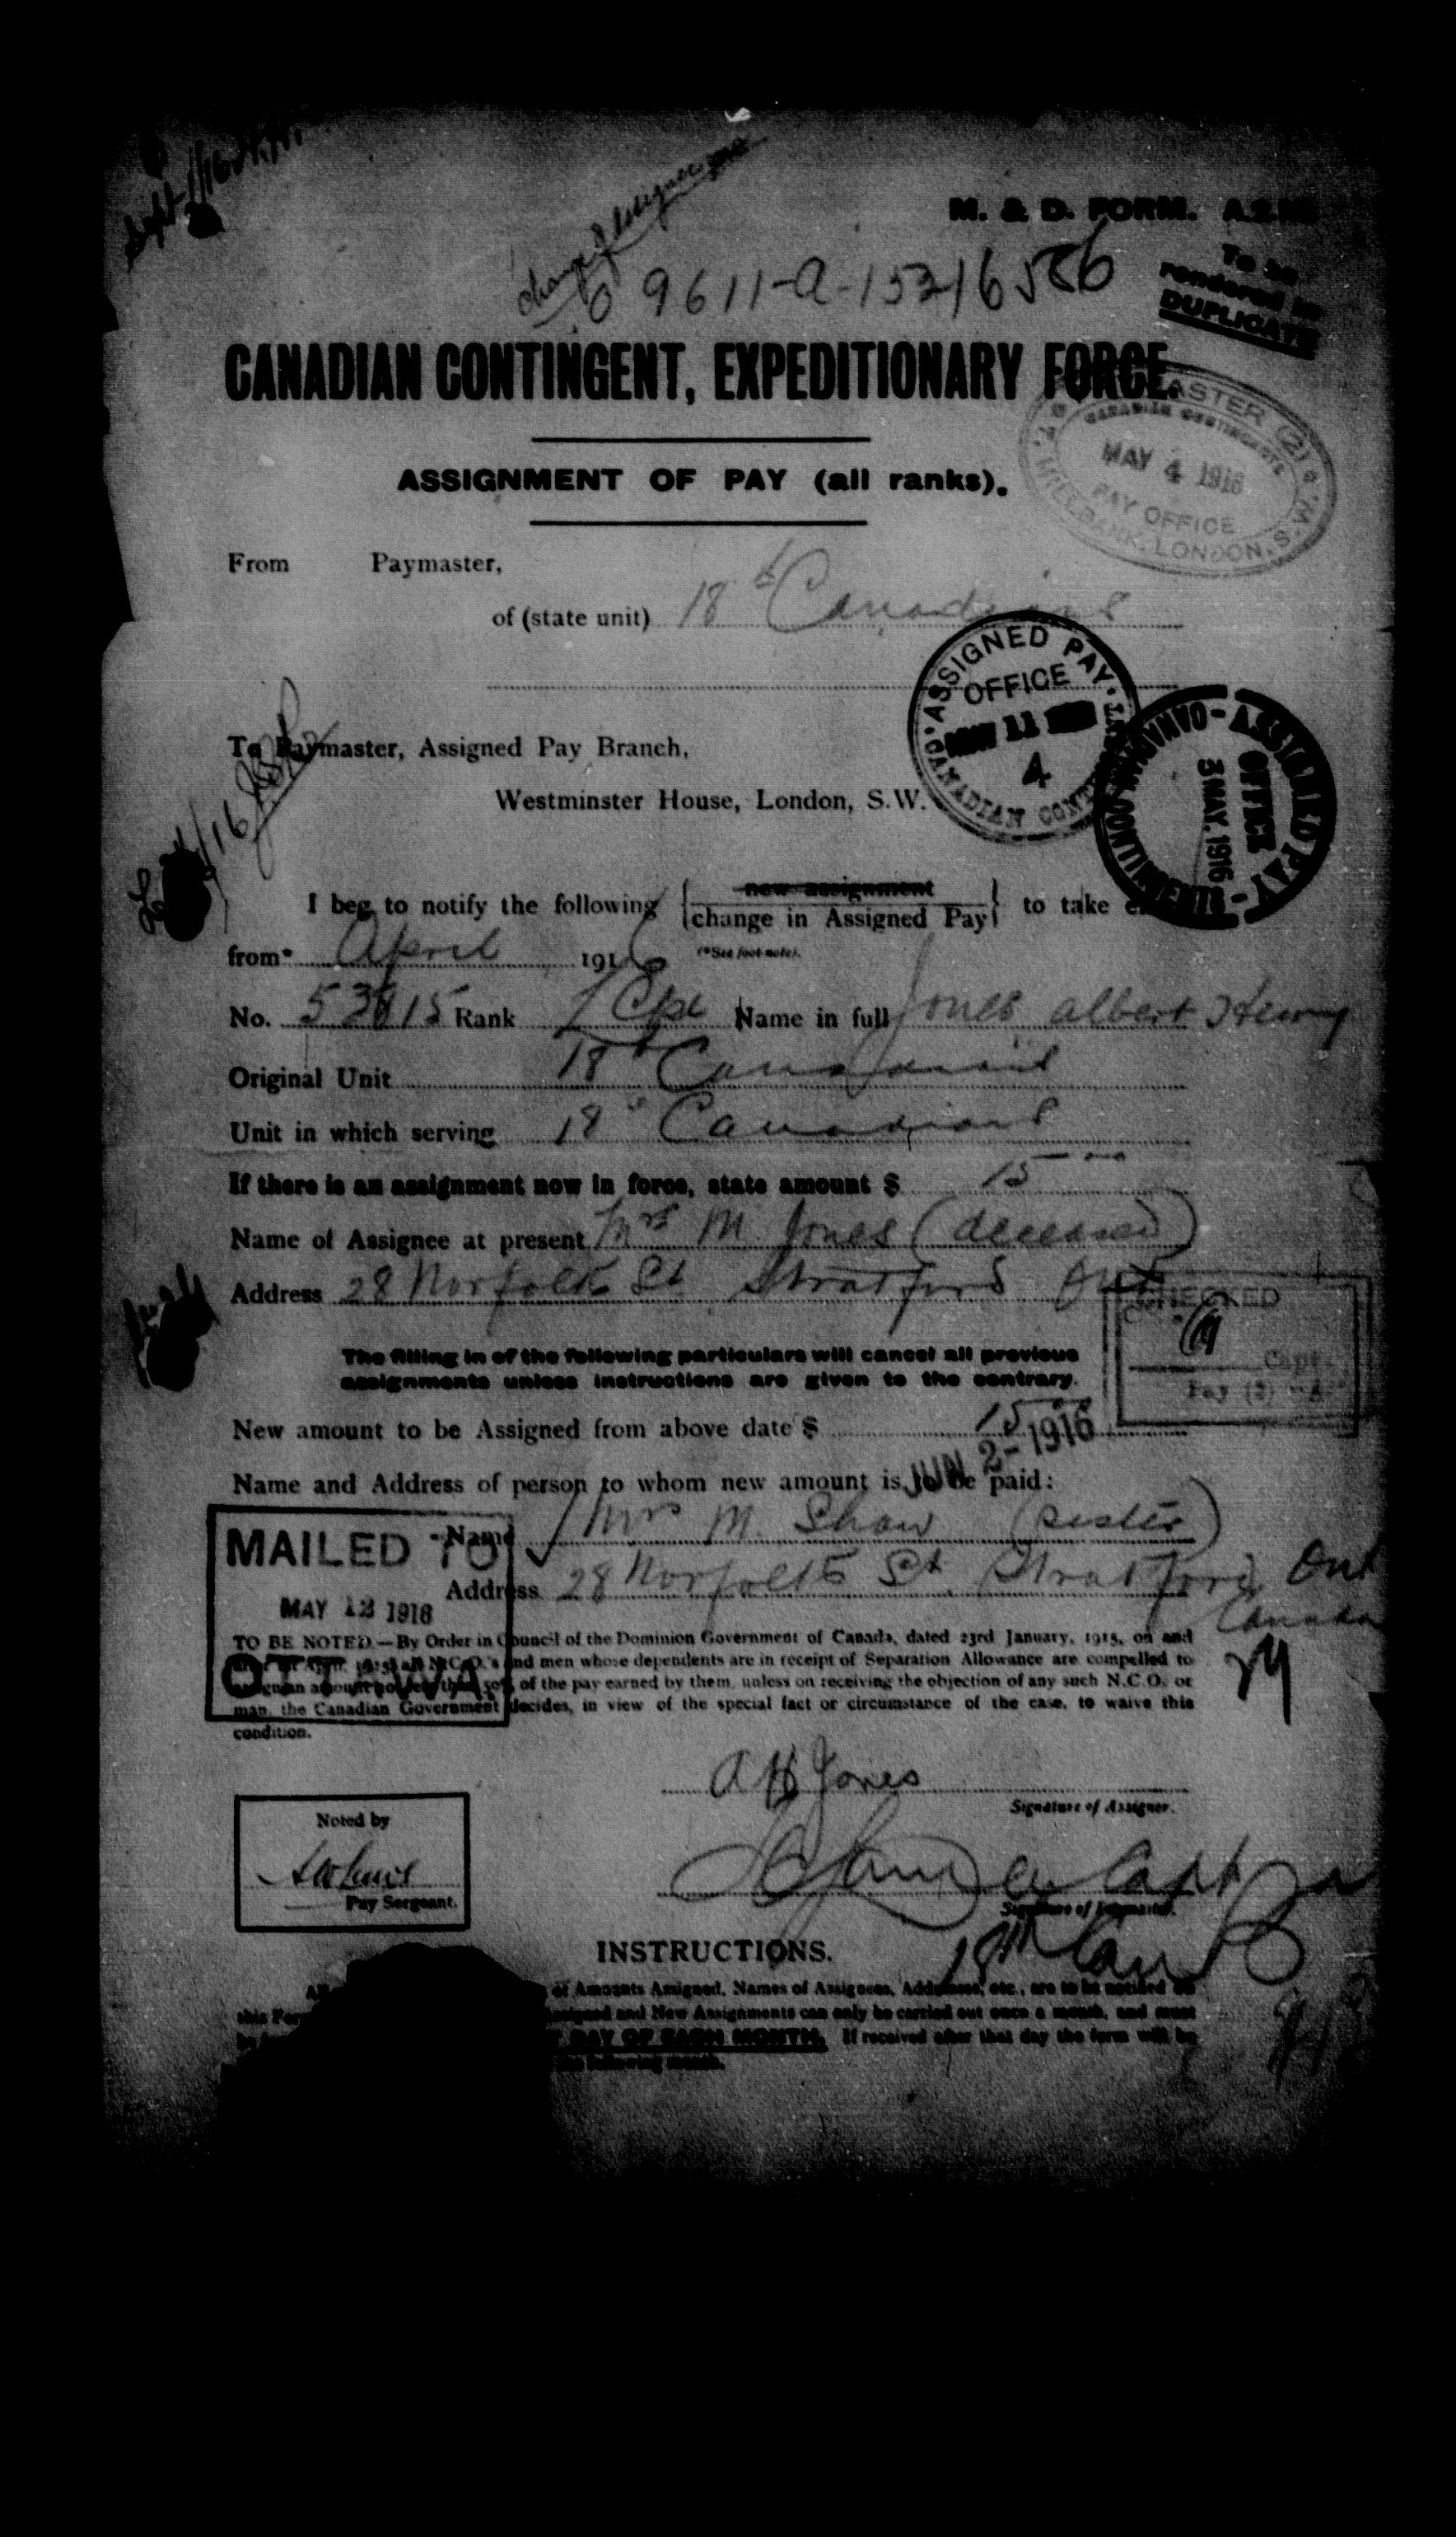 M. & D. FORM.
change of assignee
9611-A-15216556
To be
rendered in
DUPLICATE
CANADIAN CONTINGENT, EXPEDITIONARY FORCE.
CANADIAN CONTINGENTS
MAY 4 1916
PAY OFFICE
MILLBANK, LONDON, S.W.
ASSIGNMENT OF PAY (all ranks).
From Paymaster,
of (state unit) 18th Canadians
ASSIGNED PAY
OFFICE
11
4
CANADIAN
ASSIGNED PAY
OFFICE
3 MAY. 1916
To Paymaster, Assigned Pay Branch,
Westminster House, London, S.W.
I beg to notify the following { new assignment
change in Assigned Pay } to take
from* April 1916 (*See foot-note).
No. 53615 Rank L/Cpl Name in full Jones Albert Henry
Original Unit 18th Canadians
Unit in which serving 18th Canadians
If there is an assignment now in force, state amount $ 15 00
Name of Assignee at present Mrs M. Jones (deceased)
Address 28 Norfolk St Stratford Ont
CHECKED
Capt.
Pay (2)
The filling in of the following particulars will cancel all previous
assignments unless instructions are given to the contrary.
New amount to be Assigned from above date $ 15 00
JUN 2- 1916
Name and Address of person to whom new amount is to be paid:
Name Mrs M. Shaw (sister)
Address 28 Norfolk St. Stratford Ont
Canada
MAILED TO
MAY 12 1916
OTTAWA
TO BE NOTED.—By Order in Council of the Dominion Government of Canada, dated 23rd January, 1915, on and
April, 1915, all N.C.O.'s and men whose dependents are in receipt of Separation Allowance are compelled to
assign an amount not less than 50% of the pay earned by them, unless on receiving the objection of any such N.C.O. or
man, the Canadian Government decides, in view of the special fact or circumstance of the case, to waive this
condition.
A H Jones
Signature of Assigner.
Noted by
Pay Sergeant.
Capt
Signature of Paymaster.
18th Can
INSTRUCTIONS.
of Amounts Assigned, Names of Assignees, Addresses, etc., are to be notified on
this
Assigned and New Assignments can only be carried out once a month, and must
DAY OF EACH MONTH. If received after that day the form will be
the following month.